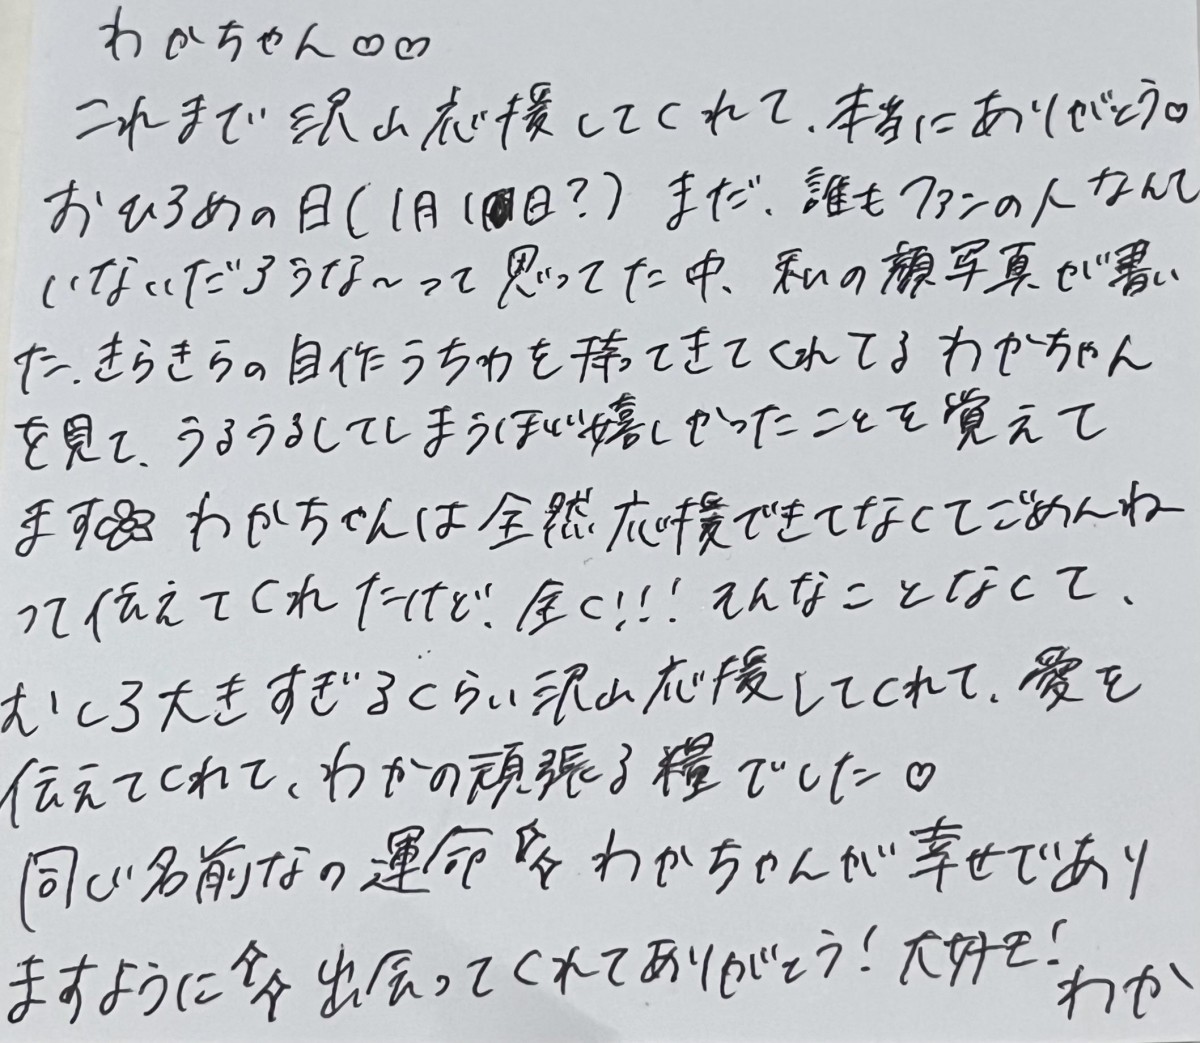 わかちゃん♡♡
これまで沢山応援してくれて、本当にありがとう♡
おひろめの日(1月1日?)まだ、誰もファンの人なんて
いないだろうな～って思ってた中、私の顔写真が書い
た、きらきらの自作うちわを持ってきてくれてるわかちゃん
を見て、うるうるしてしまうほど嬉しかったことを覚えて
ます わかちゃんは全然応援できてなくてごめんね
って伝えてくれたけど、全く!!!そんなことなくて、
むしろ大きすぎるくらい沢山応援してくれて、愛を
伝えてくれて、わかの頑張る糧でした♡
同じ名前なの運命✨わかちゃんが幸せであり
ますように✨出会ってくれてありがとう!大好き!
わか